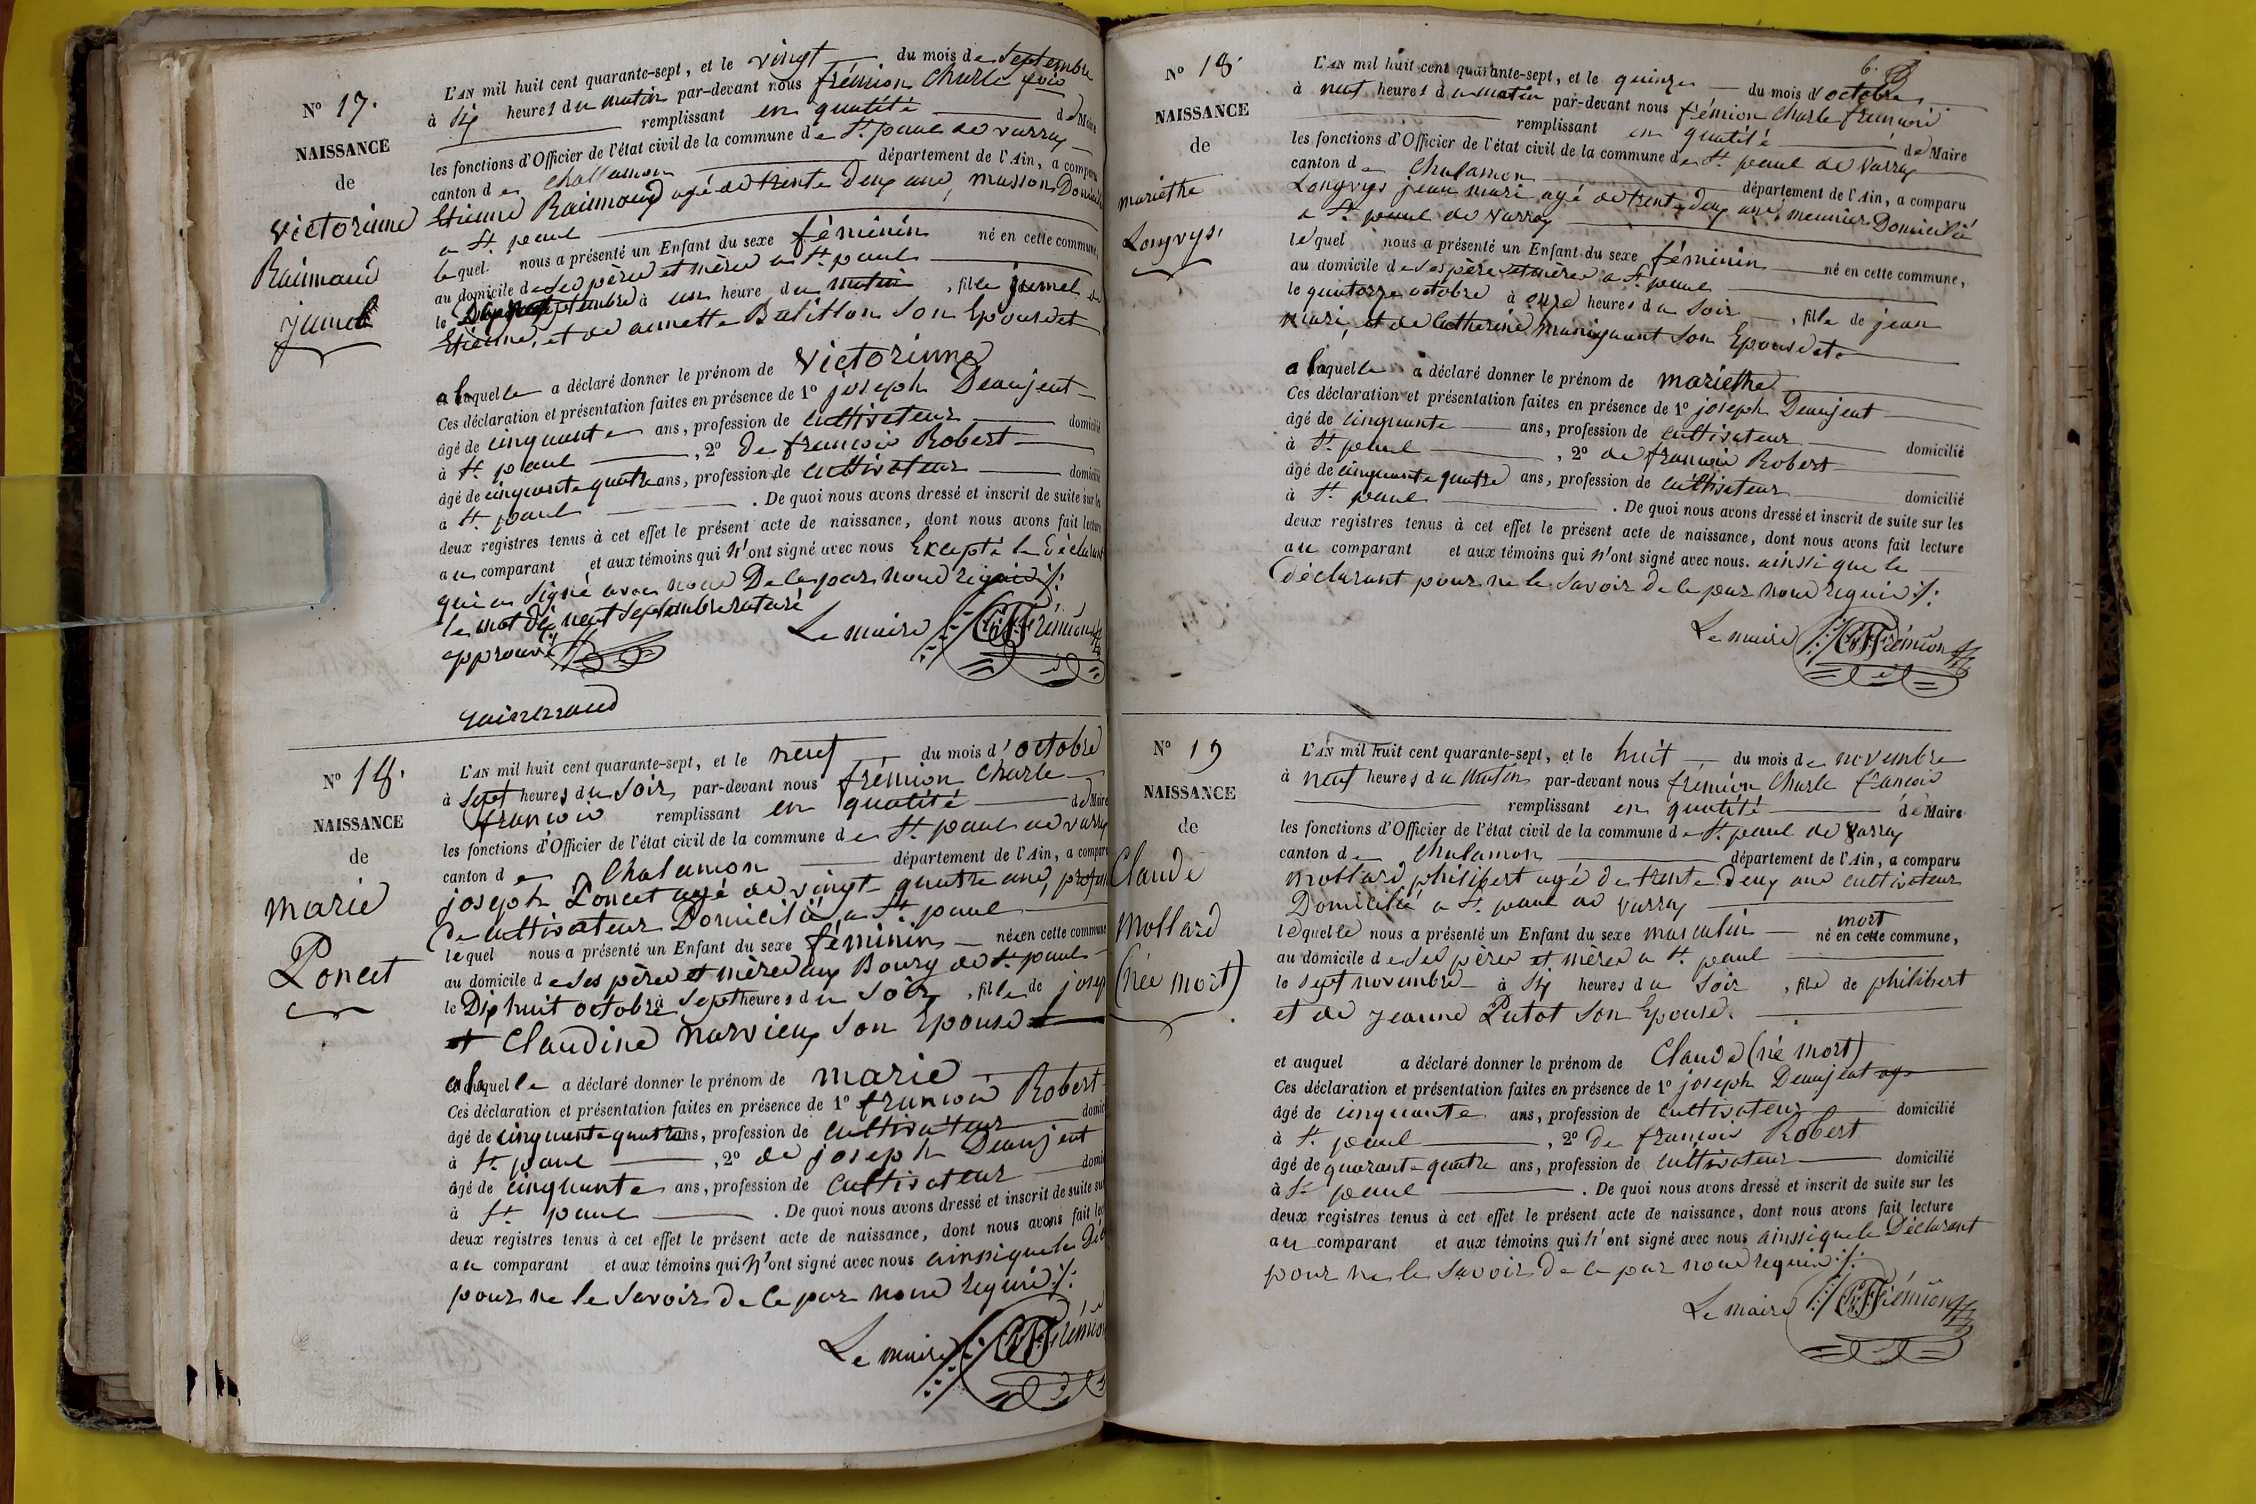 N° 17.
NAISSANCE
de
victorinne
Raimond
jumel
L'AN mil huit cent quarante-sept, et le vingt du mois de septembre
à six heures du matin par-devant nous frémion Charle
remplissant en qualité de Maire
les fonctions d'Officier de l'état civil de la commune de St. paul de varax
canton de Challamon département de l'Ain, a comparu
Etienne Raimond agé de trente deux ans, masson Domicilié
a St. paul
lequel nous a présenté un Enfant du sexe féminin né en cette commune,
au domicile de ses père et mère a St. paul
le septembre à une heure du matin, fille jumel de
Etienne, et de annette Batillon son Epouse et
a laquelle a déclaré donner le prénom de victorinne
Ces déclaration et présentation faites en présence de 1° joseph Deaujeat
âgé de cinquante ans, profession de cultivateur domicilié
à St. paul, 2° De francois Robert
âgé de cinquante quatre ans, profession de cultivateur domicilié
à St. paul. De quoi nous avons dressé et inscrit de suite sur les
deux registres tenus à cet effet le présent acte de naissance, dont nous avons fait lecture
au comparant et aux témoins qui n'ont signé avec nous Excepté le Déclarant
qui a signé avec nous De ce par nous requis ./.
le mot dix neuf septembre raturé
approuvé
Le maire Frémion
raimond
N° 18.
NAISSANCE
de
marie
Poncet
L'AN mil huit cent quarante-sept, et le neuf du mois d'octobre
à sept heures du soir par-devant nous frémion Charle
francois remplissant en qualité de Maire
les fonctions d'Officier de l'état civil de la commune de St. paul de varax
canton de Chalamon département de l'Ain, a comparu
joseph Poncet agé de vingt quatre ans, profession
de cultivateur Domicilié a St. paul
lequel nous a présenté un Enfant du sexe féminin née en cette commune
au domicile de ses père et mère aux Bourg de St. paul
le Dix huit octobre à sept heures du soir, fille de josep
et Claudine narvieux son Epouse
a laquelle a déclaré donner le prénom de marie
Ces déclaration et présentation faites en présence de 1° francois Robert
âgé de cinquante quatre ans, profession de cultivateur domici
à St. paul, 2° de joseph Deaujeat
âgé de cinquante ans, profession de cultivateur domi
à St. paul. De quoi nous avons dressé et inscrit de suite sur
deux registres tenus à cet effet le présent acte de naissance, dont nous avons fait lec
au comparant et aux témoins qui n'ont signé avec nous ainsi que le Dé
pour ne le savoir de ce par nous requis ./.
Le maire Frémion
6.
N° 18.
NAISSANCE
de
mariethe
Longvys
L'AN mil huit cent quarante-sept, et le quinze du mois d'octobre
à neuf heures du matin par-devant nous frémion Charle francois
remplissant en qualité de Maire
les fonctions d'Officier de l'état civil de la commune de St. paul de varax
canton de Chalamon département de l'Ain, a comparu
Longvys jean mari agé de trente deux ans, meunier Domicilié
a St. paul de varax
lequel nous a présenté un Enfant du sexe féminin né en cette commune,
au domicile de ses père et mère a St. paul
le quatorze octobre à onze heures du soir, fille de jean
mari, et de Catherine maniguant son Epouse et
a laquelle a déclaré donner le prénom de mariethe
Ces déclaration et présentation faites en présence de 1° joseph Deaujeat
âgé de cinquante ans, profession de cultivateur domicilié
à St. paul, 2° de francois Robert
âgé de cinquante quatre ans, profession de cultivateur domicilié
à St. paul. De quoi nous avons dressé et inscrit de suite sur les
deux registres tenus à cet effet le présent acte de naissance, dont nous avons fait lecture
au comparant et aux témoins qui n'ont signé avec nous. ainssi que le
déclarant pour ne le savoir de ce par nous requis ./.
Le maire Frémion
N° 19
NAISSANCE
de
Claude
Mollard
(née mort)
L'AN mil huit cent quarante-sept, et le huit du mois de novembre
à neuf heures du matin par-devant nous frémion Charle francois
remplissant en qualité de Maire
les fonctions d'Officier de l'état civil de la commune de St. paul de varax
canton de Chalamon département de l'Ain, a comparu
mollard philibert agé de trente deux ans cultivateur
Domicilié a St. paul de varax
lequelle nous a présenté un Enfant du sexe masculin né mort en cette commune,
au domicile de ses père et mère a St. paul
le sept novembre à six heures du soir, fils de philibert
et de jeanne Putot son Epouse.
et auquel a déclaré donner le prénom de Claude (né mort)
Ces déclaration et présentation faites en présence de 1° joseph Deaujeat
âgé de cinquante ans, profession de cultivateur domicilié
à St. paul, 2° De francois Robert
âgé de quarante quatre ans, profession de cultivateur domicilié
à St. paul. De quoi nous avons dressé et inscrit de suite sur les
deux registres tenus à cet effet le présent acte de naissance, dont nous avons fait lecture
au comparant et aux témoins qui n'ont signé avec nous ainssi que le Déclarant
pour ne le savoir de ce par nous requis ./.
Le maire Frémion